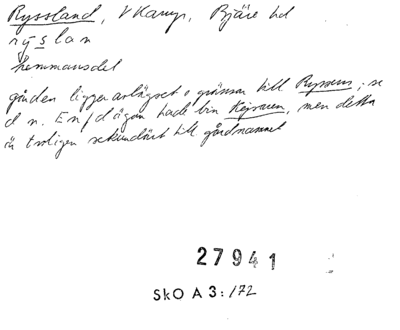 Ryssland, V Karup, Bjäre hd
rýslan
hemmansdel
gården ligger avlägset o gränsar till Ryssen; se
d n. En f d ägare hade bin Kejsaren, men detta
är troligen sekundärt till gårdnamnet
27941
SkO A 3:/72